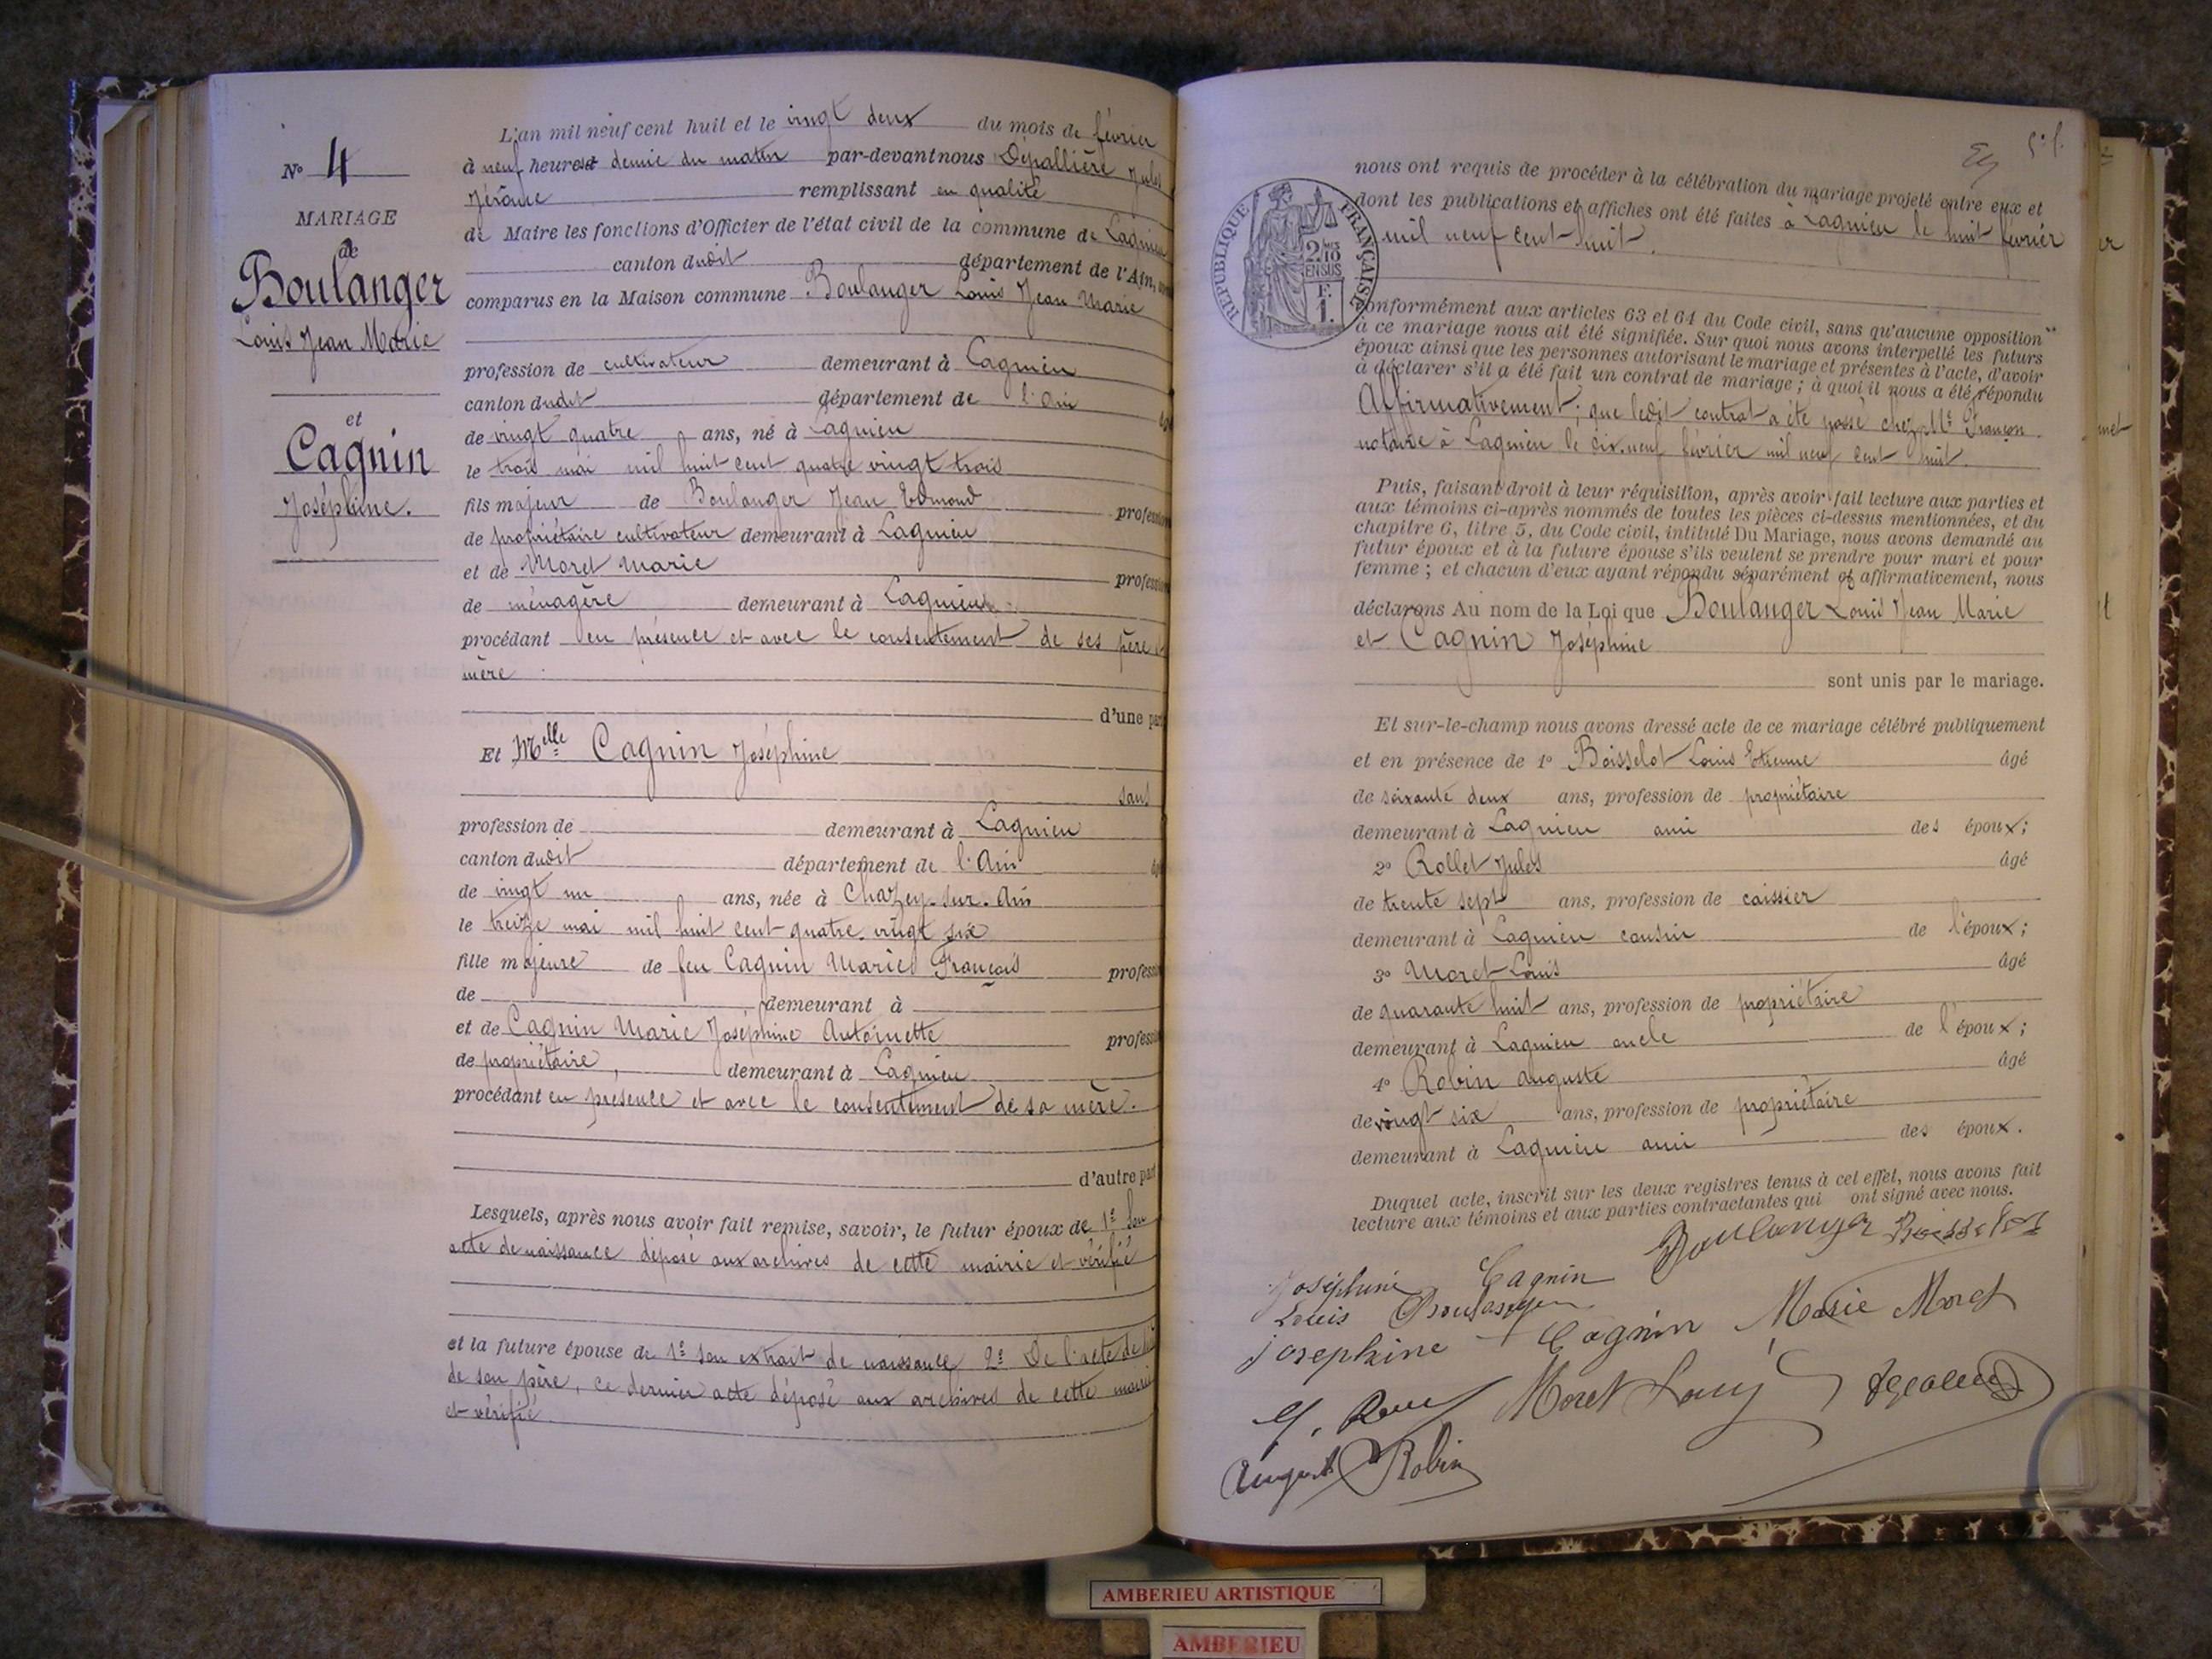 L'an mil neuf cent huit et le vingt deux du mois de février
N° 4
à neuf heures et demie du matin par-devant nous Dépallière Jules
Jérôme remplissant en qualité
MARIAGE
de Maire les fonctions d'Officier de l'état civil de la commune de Lagnieu
de
canton dudit département de l'Ain,
Boulanger
comparus en la Maison commune Boulanger Louis Jean Marie
Louis Jean Marie
profession de cultivateur demeurant à Lagnieu
canton dudit département de l'Ain
et
de vingt quatre ans, né à Lagnieu
Cagnin
le trois mai mil huit cent quatre vingt trois
Joséphine.
fils majeur de Boulanger Jean Edmond profession
de propriétaire cultivateur demeurant à Lagnieu
et de Moret Marie profession
de ménagère demeurant à Lagnieu
procédant en présence et avec le consentement de ses père et
mère
d'une part
Et Melle Cagnin Joséphine
sans
profession de demeurant à Lagnieu
canton dudit département de l'Ain
de vingt un ans, née à Chazey-sur-Ain
le treize mai mil huit cent quatre vingt six
fille majeure de feu Cagnin Marie François profession
de demeurant à
et de Cagnin Marie Joséphine Antoinette profession
de propriétaire, demeurant à Lagnieu
procédant en présence et avec le consentement de sa mère.
d'autre part
Lesquels, après nous avoir fait remise, savoir, le futur époux de 1° son
acte de naissance déposé aux archives de cette mairie et vérifié
et la future épouse de 1° son extrait de naissance 2° De l'acte de
de son père, ce dernier acte déposé aux archives de cette mairie
et vérifié
nous ont requis de procéder à la célébration du mariage projeté entre eux et
dont les publications et affiches ont été faites à Lagnieu le huit février
mil neuf cent huit.
REPUBLIQUE FRANÇAISE
2/10
EN SUS
F.
1.
conformément aux articles 63 et 64 du Code civil, sans qu'aucune opposition
à ce mariage nous ait été signifiée. Sur quoi nous avons interpellé les futurs
époux ainsi que les personnes autorisant le mariage et présentes à l'acte, d'avoir
à déclarer s'il a été fait un contrat de mariage ; à quoi il nous a été répondu
Affirmativement ; que ledit contrat a été passé chez Me Françon
notaire à Lagnieu le dix-neuf février mil neuf cent huit.
Puis, faisant droit à leur réquisition, après avoir fait lecture aux parties et
aux témoins ci-après nommés de toutes les pièces ci-dessus mentionnées, et du
chapitre 6, titre 5, du Code civil, intitulé Du Mariage, nous avons demandé au
futur époux et à la future épouse s'ils veulent se prendre pour mari et pour
femme ; et chacun d'eux ayant répondu séparément et affirmativement, nous
déclarons Au nom de la Loi que Boulanger Louis Jean Marie
et Cagnin Joséphine
sont unis par le mariage.
Et sur-le-champ nous avons dressé acte de ce mariage célébré publiquement
et en présence de 1° Boisselot Louis Etienne âgé
de soixante deux ans, profession de propriétaire
demeurant à Lagnieu ami des époux ;
2° Rollet Jules âgé
de trente sept ans, profession de caissier
demeurant à Lagnieu cousin de l'époux ;
3° Moret Louis âgé
de quarante huit ans, profession de propriétaire
demeurant à Lagnieu oncle de l'époux ;
4° Robin Auguste âgé
de vingt six ans, profession de propriétaire
demeurant à Lagnieu ami des époux.
Duquel acte, inscrit sur les deux registres tenus à cet effet, nous avons fait
lecture aux témoins et aux parties contractantes qui ont signé avec nous.
Boulanger Boisselot
Joséphine Cagnin
Louis Boulanger
josephine Cagnin Marie Moret
Moret Louis
August Robin
AMBERIEU ARTISTIQUE
AMBERIEU